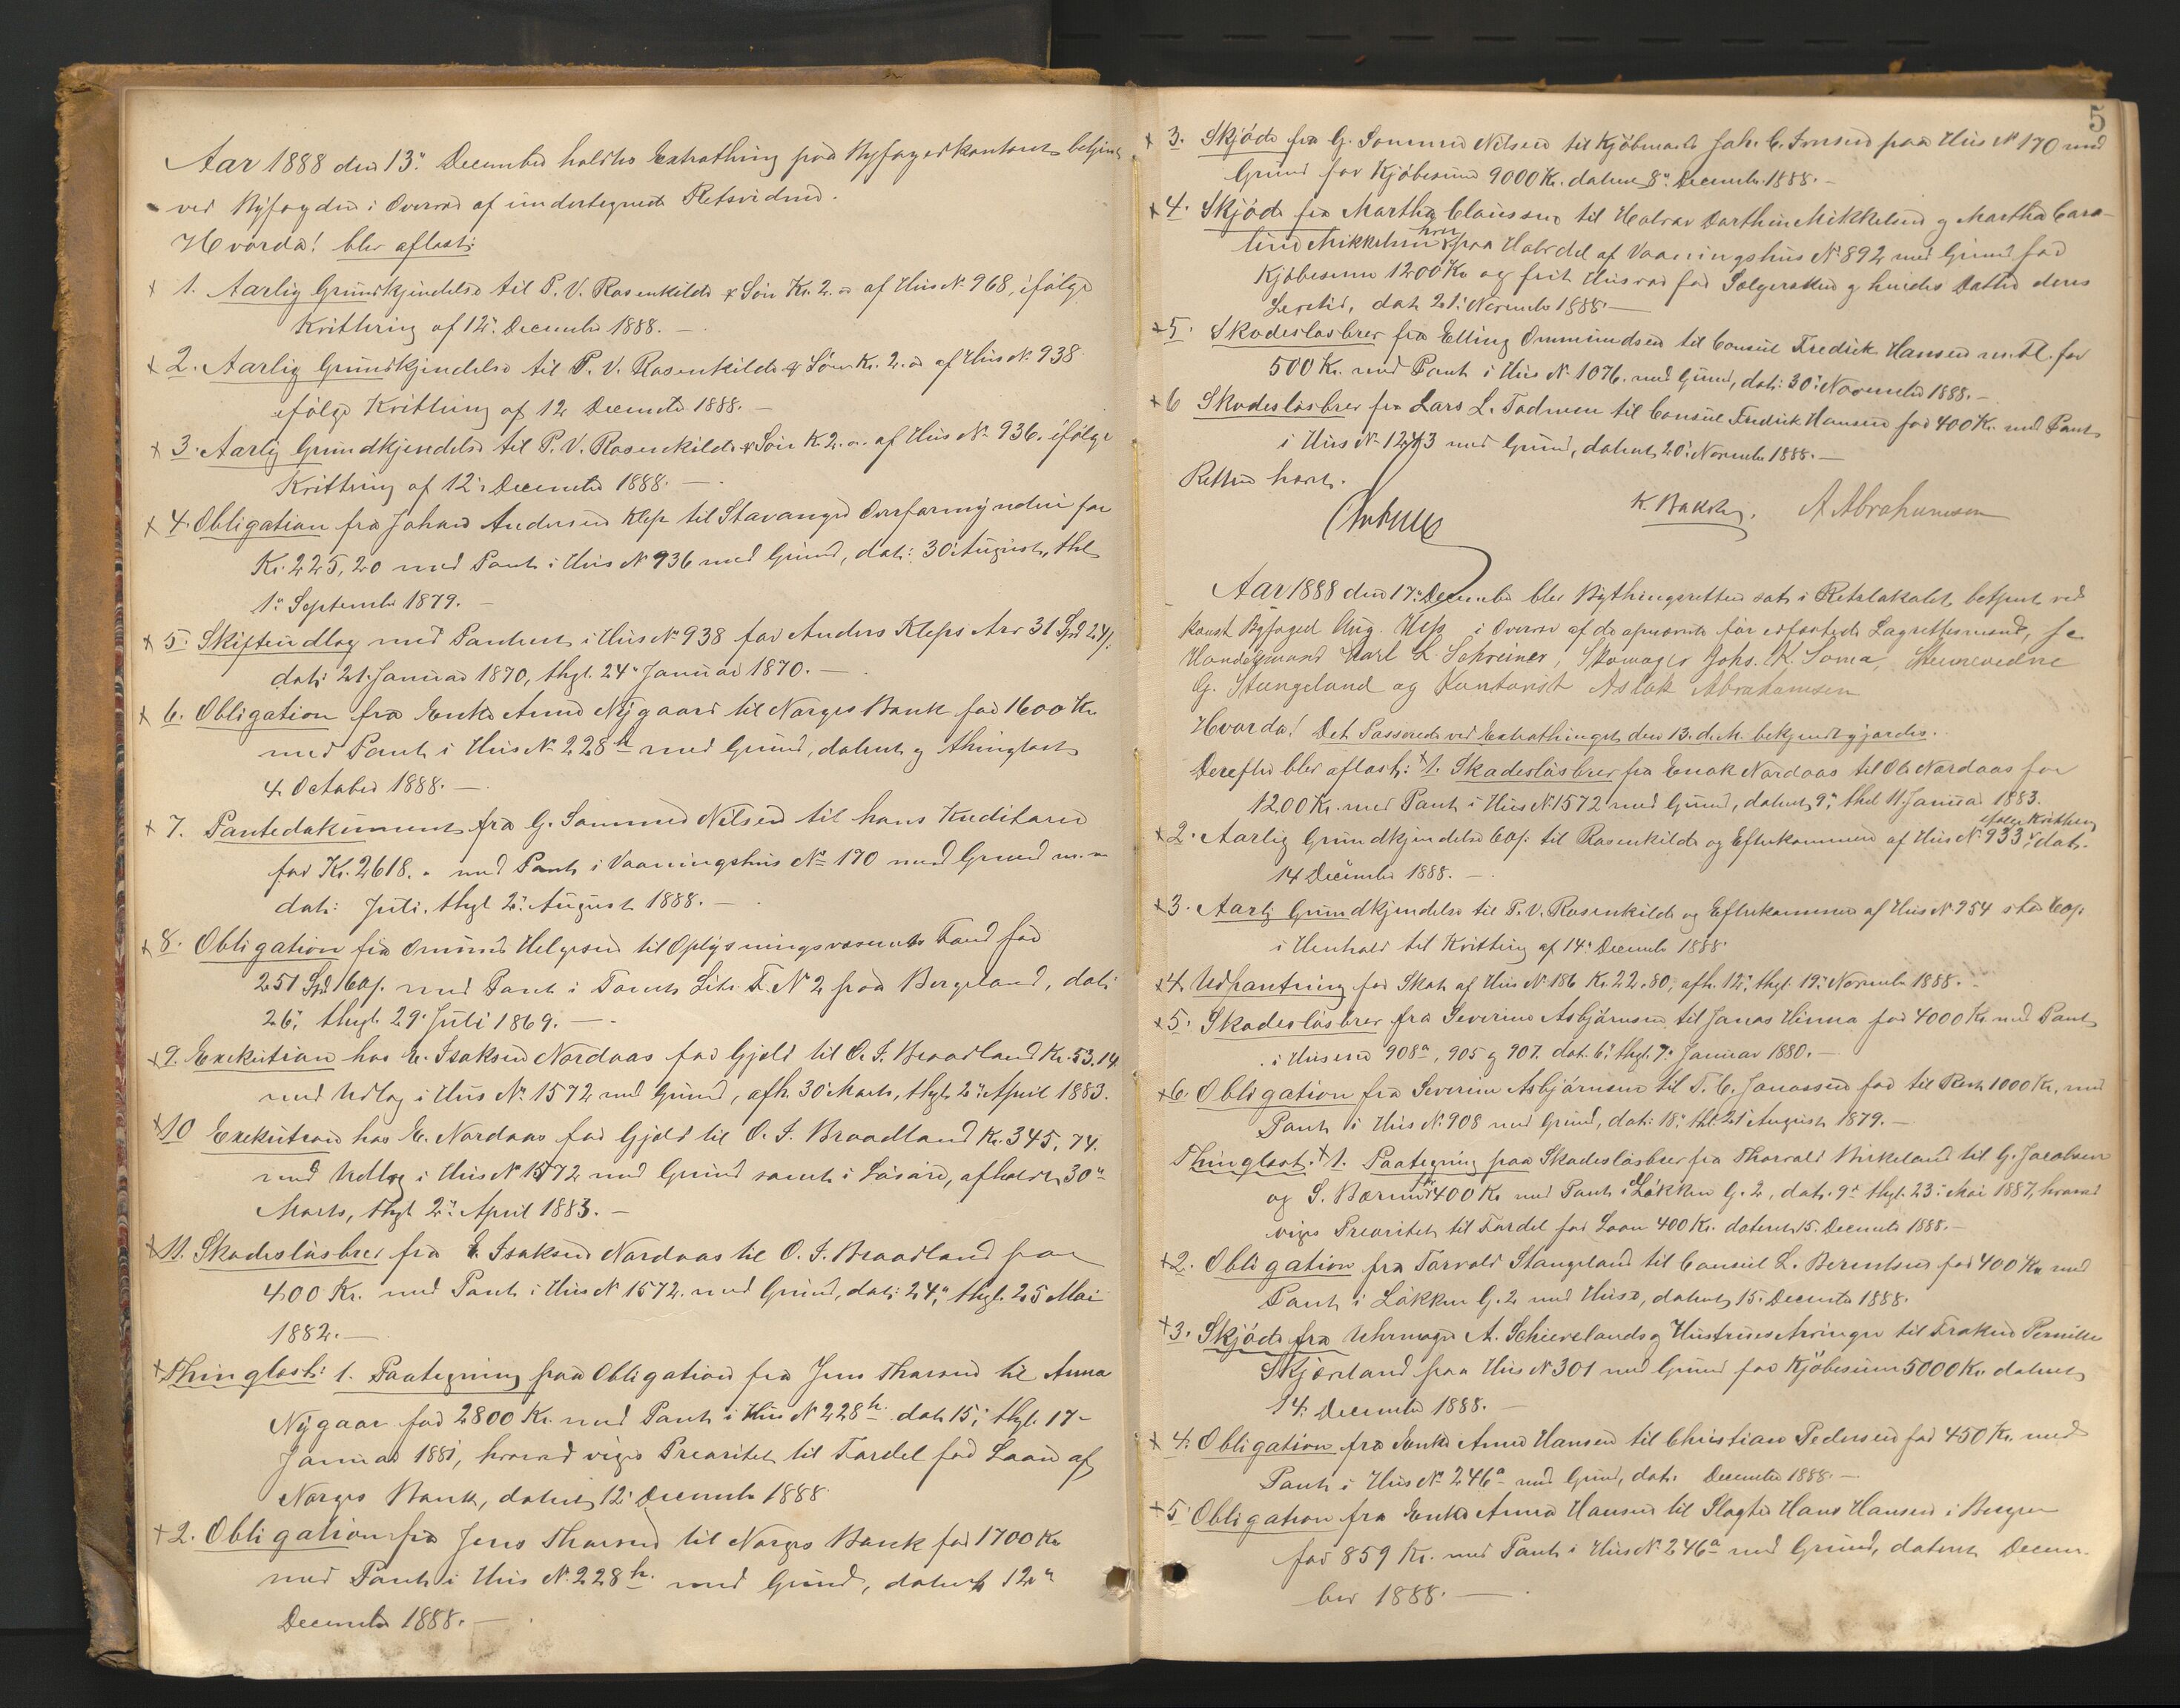 Aar 1888 den 13de December holdtes Extrathing paa Byfogedkontoret betjent
ved Byfogden i Overvær af undertegnede Retsvidner.
Hvorda! blev aflæst:
1. Aarlig Grundkjendelse til P. V. Rosenkilde & Søn Kr. 2. af Hus N. 968, ifølge
Kvittering af 12te December 1888. —
2. Aarlig Grundkjendelse til P. V. Rosenkilde & Søn Kr. 2. af Hus N. 938
ifølge Kvittering af 12 December 1888. —
3. Aarlig Grundkjendelse til P. V. Rosenkilde & Søn K. 2. af Hus N. 936, ifølge
Kvittering af 12te December 1888. —
4. Obligation fra Johan Andersen Klep til Stavanger Overformynderi for
Kr. 225,20 med Pant i Hus N 936 med Grund, dat: 30 August, thl
1ste September 1879. —
5. Skifteudlæg med Panteret i Hus N. 938 for Anders Kleps Arv 31 Spd 24 s.
dat: 21. Januar 1870, thgl. 24. Januar 1870. —
6. Obligation fra Enke Anna Nygaard til Norges Bank for 1600 Kr
med Pant i Hus N. 228 h med Grund, dateret og thinglæst
4. October 1888. —
7. Pantedokument fra G. Sommer Nilsen til hans Kreditorer
for Kr. 2618. med Pant i Vaaningshus No 170 med Grund m. m
dat: Juli, thgl 2. August 1888. —
8. Obligation fra Omund Helgesen til Oplysningsvæsenets Fond for
251 Spd 60 s. med Pant i Tomt Litr. F. N 2 paa Bergeland, dat:
26, thgl. 29. Juli 1869. —
9. Exekution hos E. Isaksen Nordaas for Gjæld til O. I. Braadland Kr. 53.14
med Udlæg i Hus No. 1572 med Grund, afh. 30 Marts, thgl. 2. April 1883.
10 Exekution hos E. Nordaas for Gjæld til O. I. Braadland Kr. 345,74.
med Udlæg i Hus N 1572 med Grund samt i Løsøre, afholdt 30
Marts, thgl 2. April 1883. —
11. Skadesløsbrev fra E. Isaksen Nordaas til O. I. Braadland for
400 Kr. med Pant i Hus N 1572. med Grund, dat: 24, thgl. 25 Mai
1882. —
Thinglæst: 1. Paategning paa Obligation fra Jens Thorsen til Anna
Nygaar for 2800 Kr. med Pant i Hus N 228 h. dat 15, thgl. 17
Januar 1881, hvorved viges Prioritet til Fordel for Laan af
Norges Bank, dateret 12 December 1888
2. Obligation fra Jens Thorsen til Norges Bank for 1700 Kr
med Pant i Hus N. 228 h. med Grund, dateret 12
December 1888. —
5
3. Skjøde fra G. Sommer Nilsen til Kjøbmand Joh. C. Iversen paa Hus N 170 med
Grund for Kjøbesum 9000 Kr. dateret 8. December 1888. —
4. Skjøde fra Martha Clausen til Halvor Dorthin Mikkelsen og Martha Caro-
line Mikkelsen hver paa Halvdel af Vaaningshus N. 892 med Grund for
Kjøbesum 1200 Kr og frit Husvær for Sælgersken og hendes Datter deres
Levetid, dat 21. November 1888. —
5. Skadesløsbrev fra Elling Ommundsen til Consul Fredrik Hansen m. Fl. for
500 Kr. med Pant i Hus N. 1076. med Grund, dat: 30. November 1888. —
6 Skadesløsbrev fra Lars L. Tadnem til Consul Fredrik Hansen for 400 Kr. med Pant
i Hus N. 1243 med Grund, dateret 20. November 1888. —
Retten hævet.
K. Bakke. A Abrahamsen
Aar 1888 den 17. December blev Bythingsretten sat i Retslokalet betjent ved
konst Byfoged Aug. Hess i Overvær af de opnævnte før edfæstede Lagrettesmænd,
Handelsmand Karl L. Schreiner, Skomager Johs. K. Soma, Stuevedne
G. Stangeland og Kontorist Aslak Abrahamsen
Hvorda! Det Passerede ved Extrathinget den 13. d. M. bekjendtgjordes.
Derefter blev aflæst: 1. Skadesløsbrev fra Enok Nordaas til Ole Nordaas for
1200 Kr. med Pant i Hus N. 1572 med Grund, dateret 9, thl 11. Januar 1883.
2. Aarlig Grundkjendelse 60 s. til Rosenkilde og Efterkommere af Hus N. 933, ifølge Kvittering dat.
14 December 1888. —
3. Aarlig Grundkjendelse til P. V. Rosenkilde og Efterkommere af Hus N. 954 60 s.
i Henhold til Kvittering af 14. December 1888.
4. Udpantning for Skat af Hus N. 186 Kr. 22.80, afh. 12, thgl. 19. November 1888. —
5. Skadesløsbrev fra Severine Asbjørnsen til Jonas Hinna for 4000 Kr. med Pant
i Husene 908a, 905 og 907. dat. 6, thgl. 7. Januar 1880. —
6. Obligation fra Severine Asbjørnsen til T. C. Jonassen for til Rest 1000 Kr. med
Pant i Hus N. 908 med Grund, dat: 18, thl. 21 August 1879. —
Thinglæst: 1. Paategning paa Skadesløsbrev fra Thorvald Birkeland til G. Jacobsen
og S. Bærum for 400 Kr med Pant i Løkken G. 2, dat. 9, thgl. 23. Mai 1887, hvorved
viges Prioritet til Fordel for Laan 400 Kr. dateret 15. December 1888. —
2. Obligation fra Torvald Stangeland til Consul L. Berentsen for 400 Kr med
Pant i Løkken G. 2 med Huse, dateret 15. December 1888.
3. Skjøde fra Uhrmager A. Schievelands og Hustrues Arvinger til Frøken Pernille
Skjæveland paa Hus N 301 med Grund for Kjøbesum 5000 Kr. dateret
14. December 1888. —
4. Obligation fra Enke Anna Hansen til Christian Pedersen for 450 Kr. med
Pant i Hus N. 246a med Grund, dat. December 1888. —
5 Obligation fra Enke Anna Hansen til Slagter Hans Hansen i Bergen
for 859 Kr. med Pant i Hus N. 246a med Grund, dateret Decem-
ber 1888. —